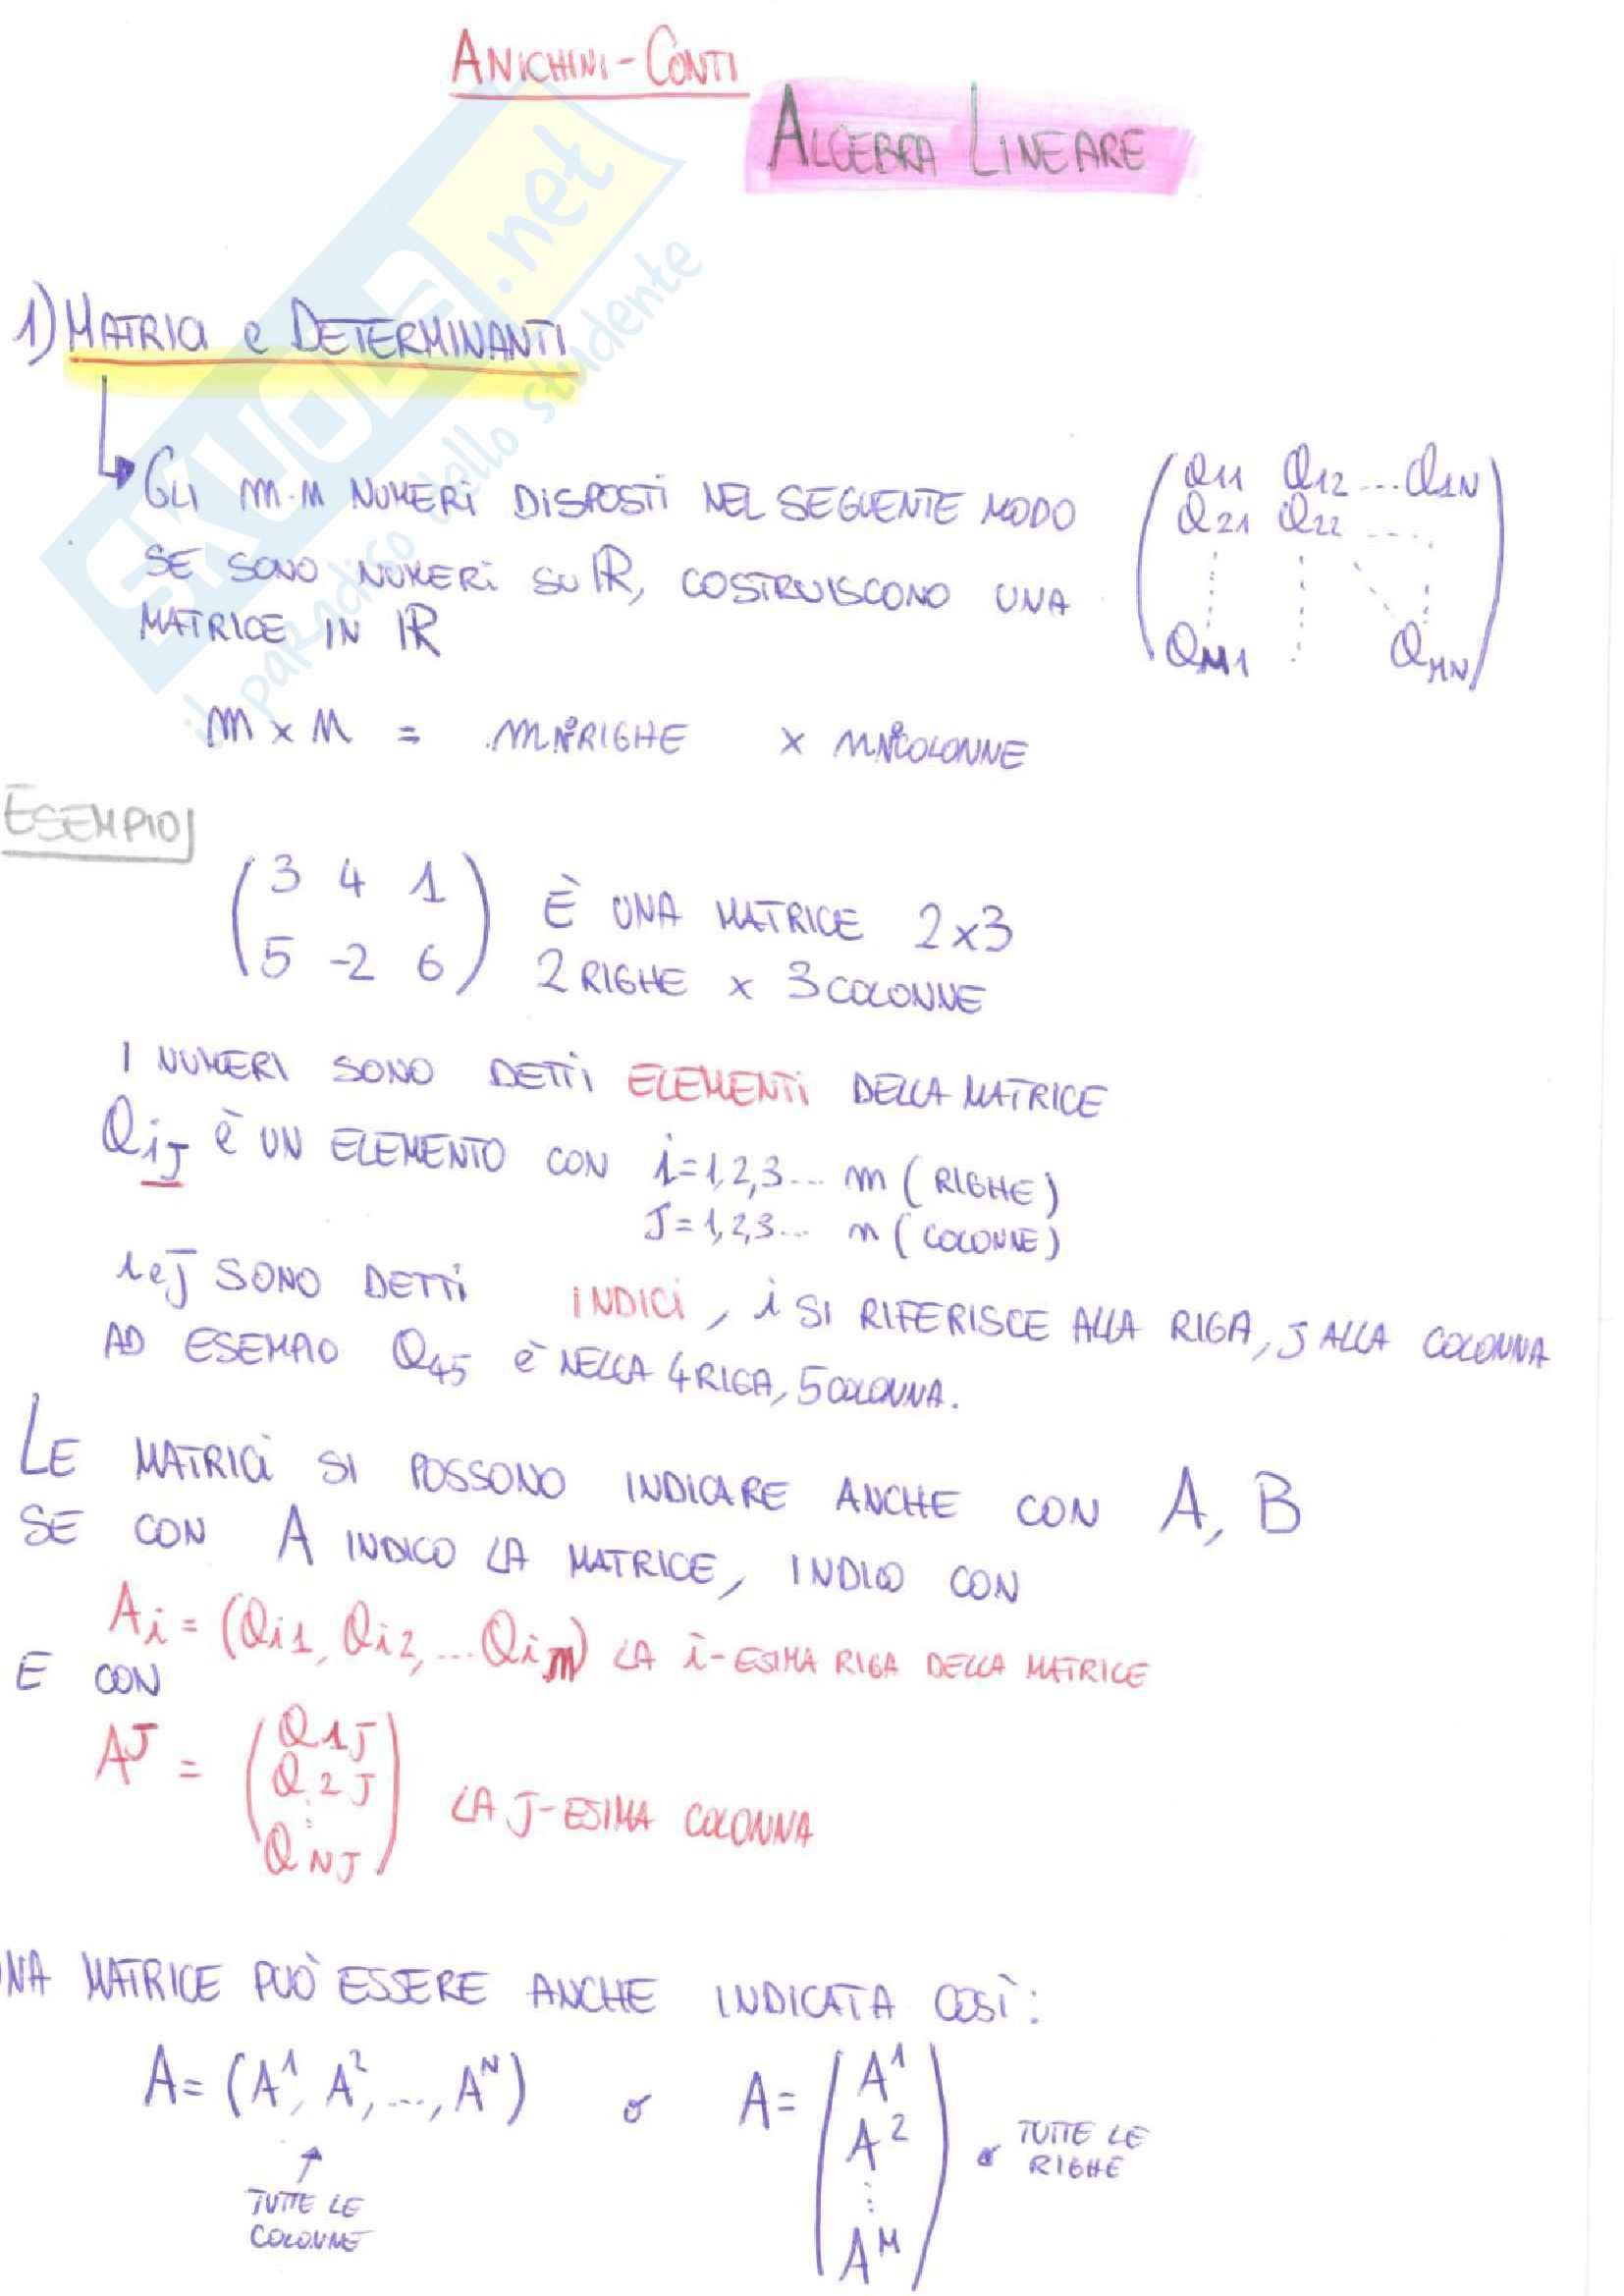 ANICHINI-CONTI
ALGEBRA LINEARE
SKUOLA.net
il paradiso dello studente
1) MATRICI e DETERMINANTI
GLI m·n NUMERI DISPOSTI NEL SEGUENTE MODO
SE SONO NUMERI SU ℝ, COSTRUISCONO UNA
MATRICE IN ℝ
a11 a12 ... a1N
a21 a22 ...
aM1 aMN
m × n = m N°RIGHE × n N°COLONNE
ESEMPIO
3 4 1
5 -2 6
È UNA MATRICE 2×3
2 RIGHE × 3 COLONNE
I NUMERI SONO DETTI ELEMENTI DELLA MATRICE
aiJ è UN ELEMENTO CON i=1,2,3... m (RIGHE)
J=1,2,3... n (COLONNE)
i e J SONO DETTI INDICI, i SI RIFERISCE ALLA RIGA, J ALLA COLONNA
AD ESEMPIO a45 è NELLA 4 RIGA, 5 COLONNA.
LE MATRICI SI POSSONO INDICARE ANCHE CON A, B
SE CON A INDICO LA MATRICE, INDICO CON
Ai = (ai1, ai2, ... aim) LA i-ESIMA RIGA DELLA MATRICE
E CON
A^J = (a1J
a2J
⋮
aNJ) LA J-ESIMA COLONNA
NA MATRICE PUÒ ESSERE ANCHE INDICATA COSÌ:
A = (A^1, A^2, ..., A^N) o A = (A^1
A^2
⋮
A^M)
TUTTE LE
COLONNE
TUTTE LE
RIGHE